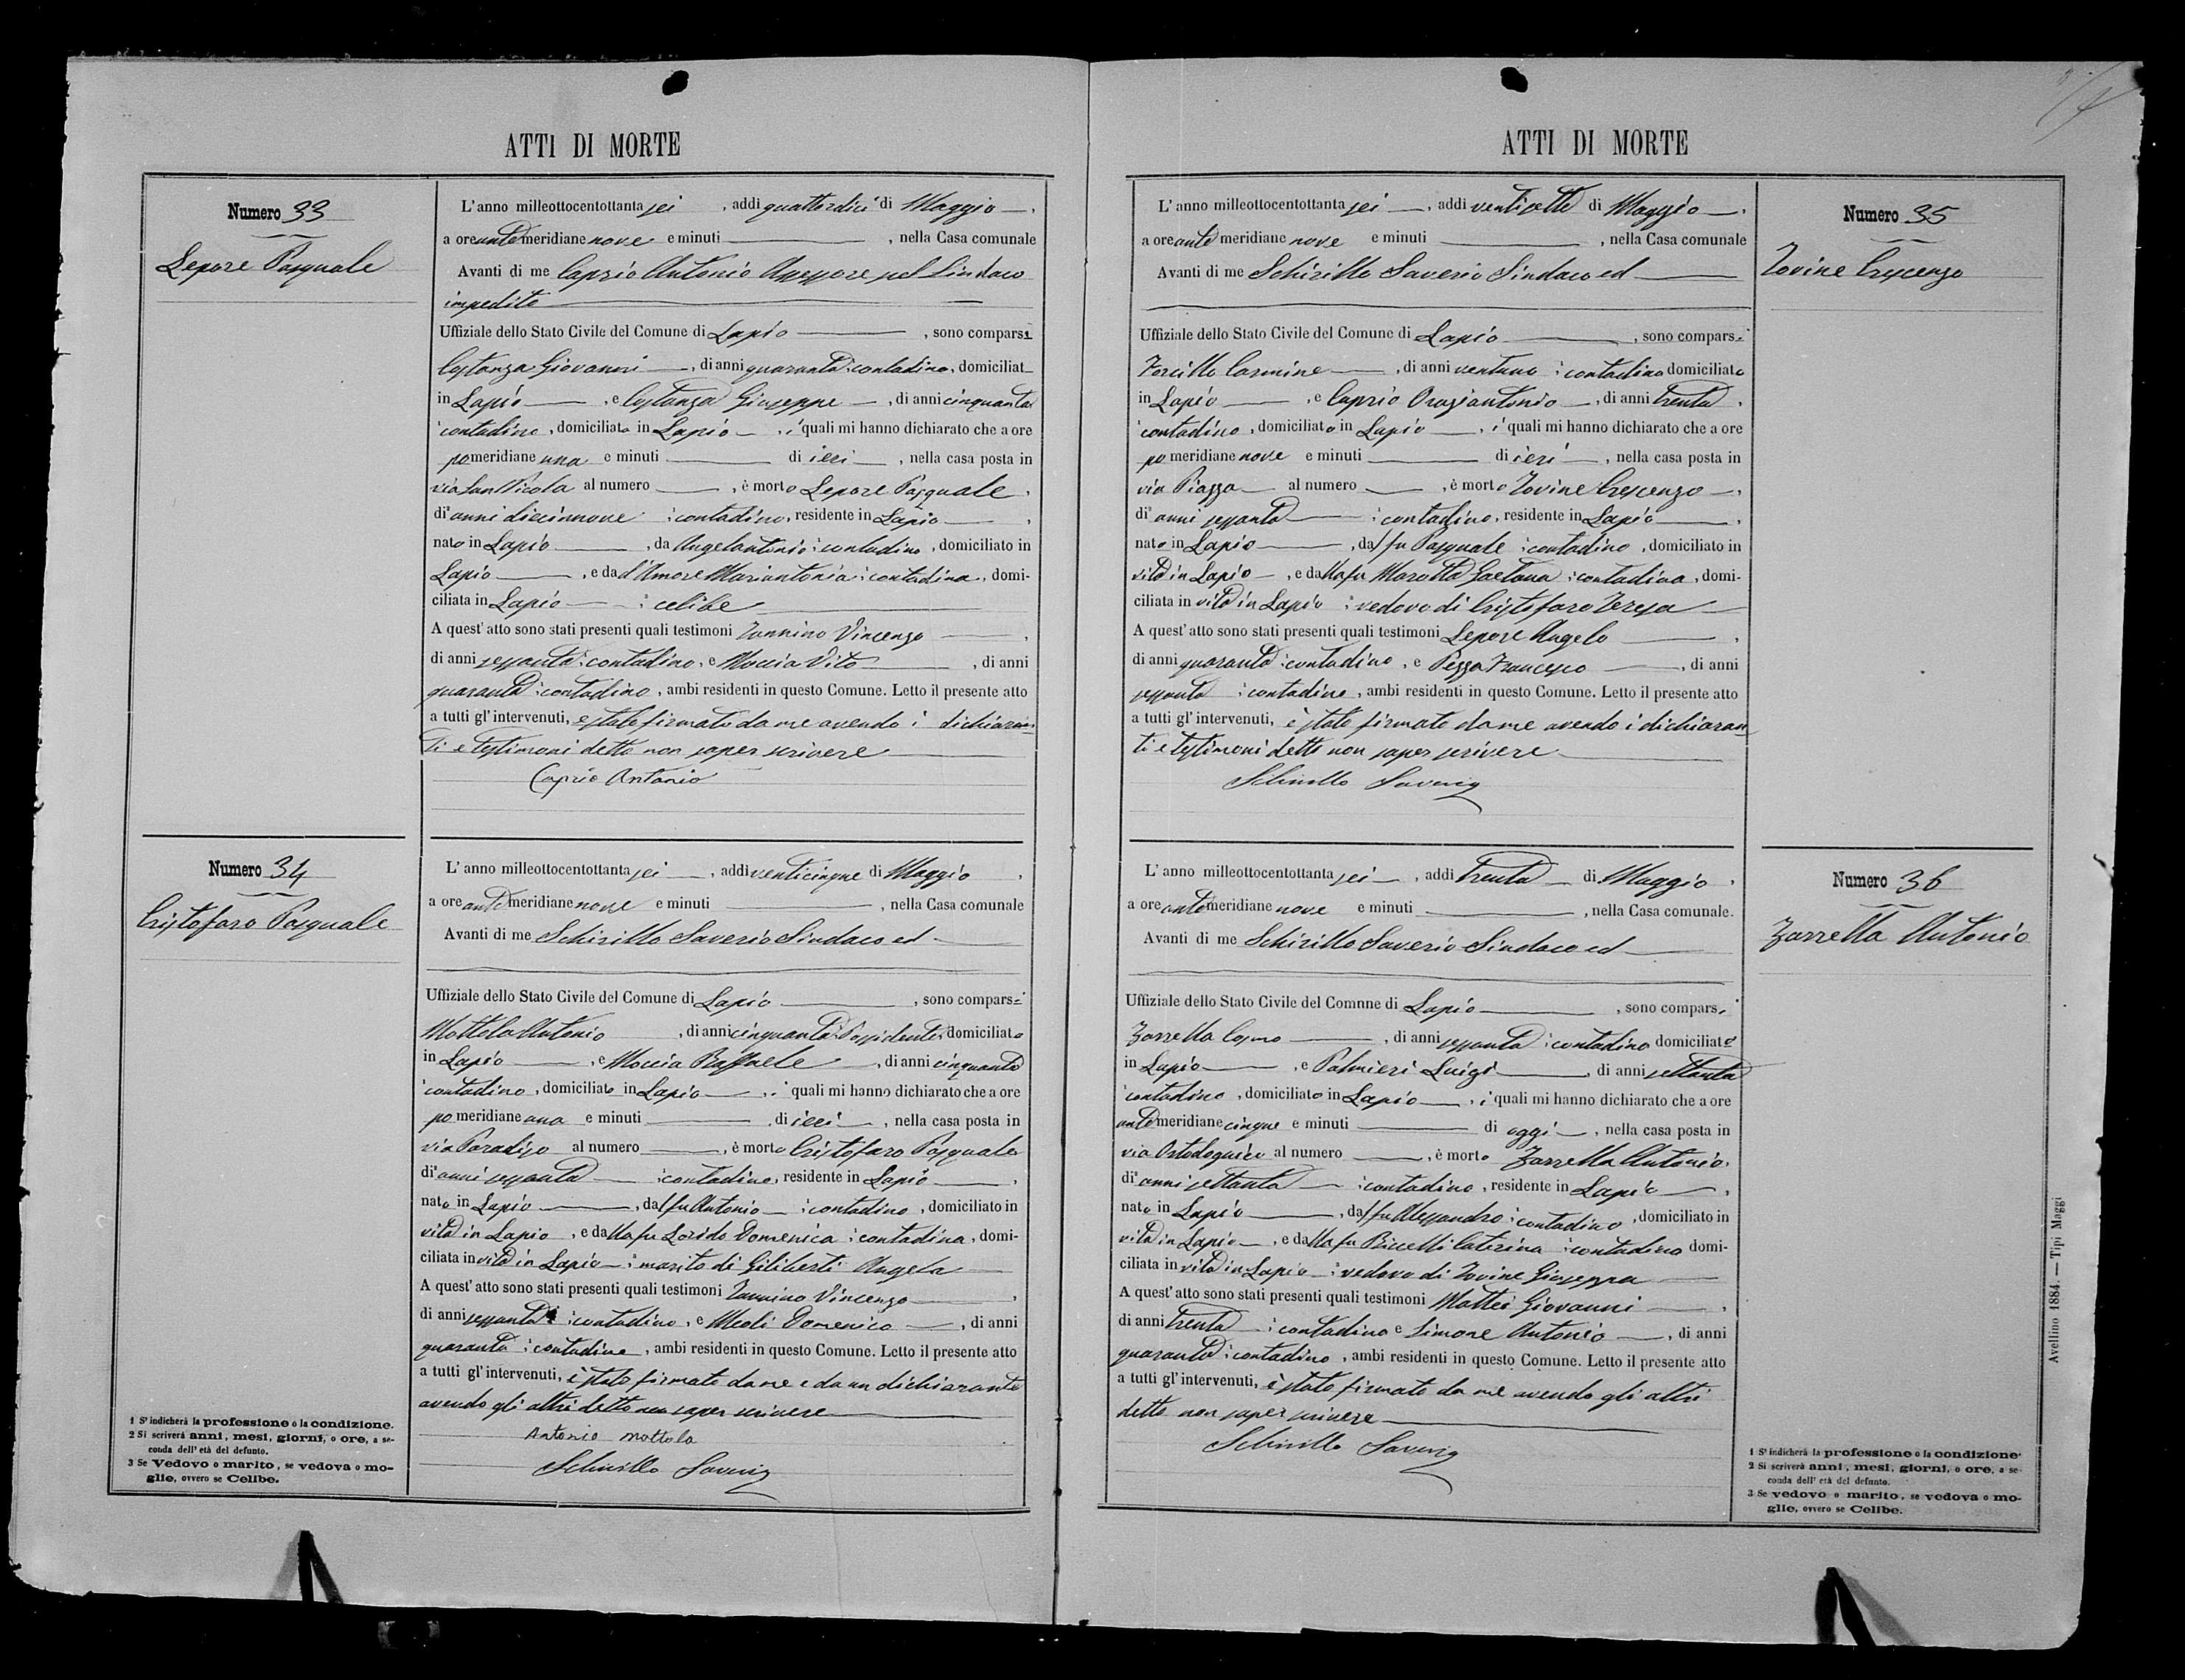 ATTI DI MORTE
Numero 33
Lepore Pasquale
L'anno milleottocentottanta sei, addì quattordici di Maggio,
a ore antemeridiane nove e minuti, nella Casa comunale
Avanti di me Caprio Antonio Assessore pel Sindaco
impedito
Uffiziale dello Stato Civile del Comune di Lapio, sono comparsi
Costanza Giovanni, di anni quaranta contadino, domiciliat
in Lapio, e Costanza Giuseppe, di anni cinquanta
contadino, domiciliato in Lapio, i quali mi hanno dichiarato che a ore
pomeridiane una e minuti di ieri, nella casa posta in
via San Nicola al numero, è morto Lepore Pasquale,
di anni diecinnove contadino, residente in Lapio,
nato in Lapio, da Angelantonio contadino, domiciliato in
Lapio, e da d'Amore Mariantonia contadina, domi-
ciliata in Lapio celibe
A quest'atto sono stati presenti quali testimoni Iannino Vincenzo,
di anni sessanta contadino, e Moccia Vito, di anni
quaranta contadino, ambi residenti in questo Comune. Letto il presente atto
a tutti gl'intervenuti, è stato firmato da me avendo i dichiaran-
ti e testimoni detto non saper scrivere
Caprio Antonio
Numero 34
Cristofaro Pasquale
L'anno milleottocentottanta sei, addì venticinque di Maggio,
a ore antemeridiane nove e minuti, nella Casa comunale
Avanti di me Schirillo Saverio Sindaco ed
Uffiziale dello Stato Civile del Comune di Lapio, sono comparsi
Mottola Antonio, di anni cinquanta Possidente, domiciliato
in Lapio, e Moccia Raffaele, di anni cinquanta
contadino, domiciliato in Lapio, i quali mi hanno dichiarato che a ore
pomeridiane una e minuti di ieri, nella casa posta in
via Paradiso al numero, è morto Cristofaro Pasquale
di anni sessanta contadino, residente in Lapio,
nato in Lapio, dal fu Antonio contadino, domiciliato in
vita in Lapio, e dalla fu Lorido Domenica contadina, domi-
ciliata in vita in Lapio marito di Giliberti Angela
A quest'atto sono stati presenti quali testimoni Iannino Vincenzo,
di anni sessanta contadino, e Meoli Domenico, di anni
quaranta contadino, ambi residenti in questo Comune. Letto il presente atto
a tutti gl'intervenuti, è stato firmato da me e da un dichiarante
avendo gli altri detto non saper scrivere
Antonio Mottola
Schirillo Saverio
1 S'indicherà la professione o la condizione.
2 Si scriverà anni, mesi, giorni, o ore, a se-
conda dell'età del defunto.
3 Se Vedovo o marito, se vedova o mo-
glie, ovvero se Celibe.
ATTI DI MORTE
Numero 35
Iovine Crescenzo
L'anno milleottocentottanta sei, addì ventisette di Maggio,
a ore antemeridiane nove e minuti, nella Casa comunale
Avanti di me Schirillo Saverio Sindaco ed
Uffiziale dello Stato Civile del Comune di Lapio, sono comparsi
Forcillo Carmine, di anni ventuno contadino domiciliato
in Lapio, e Caprio Oraziantonio, di anni trenta,
contadino, domiciliato in Lapio, i quali mi hanno dichiarato che a ore
pomeridiane nove e minuti di ieri, nella casa posta in
via Piazza al numero, è morto Iovine Crescenzo,
di anni sessanta contadino, residente in Lapio,
nato in Lapio, dal fu Pasquale contadino, domiciliato in
vita in Lapio, e dalla fu Marotta Gaetana contadina, domi-
ciliata in vita in Lapio vedovo di Cristofaro Teresa
A quest'atto sono stati presenti quali testimoni Lepore Angelo,
di anni quaranta contadino, e Pezza Francesco, di anni
sessanta contadino, ambi residenti in questo Comune. Letto il presente atto
a tutti gl'intervenuti, è stato firmato da me avendo i dichiaran
ti e testimoni detto non saper scrivere
Schirillo Saverio
Numero 36
Zarrella Antonio
L'anno milleottocentottanta sei, addì trenta di Maggio,
a ore antemeridiane nove e minuti, nella Casa comunale.
Avanti di me Schirillo Saverio Sindaco ed
Uffiziale dello Stato Civile del Comnne di Lapio, sono comparsi
Zarrella Cosmo, di anni sessanta contadino domiciliato
in Lapio, e Palmieri Luigi, di anni settanta
contadino, domiciliato in Lapio, i quali mi hanno dichiarato che a ore
antemeridiane cinque e minuti di oggi, nella casa posta in
via al numero, è morto Zarrella Antonio,
di anni settanta contadino, residente in Lapio,
nato in Lapio, dal fu Alessandro contadino, domiciliato in
vita in Lapio, e dalla fu Biccelli Caterina contadina domi-
ciliata in vita in Lapio vedovo di Iovine Giuseppa
A quest'atto sono stati presenti quali testimoni Mattei Giovanni,
di anni trenta contadino e Simone Antonio, di anni
quaranta contadino, ambi residenti in questo Comune. Letto il presente atto
a tutti gl'intervenuti, è stato firmato da me avendo gli altri
detto non saper scrivere
Schirillo Saverio
1 S'indicherà la professione o la condizione.
2 Si scriverà anni, mesi, giorni, o ore, a se-
conda dell'età del defunto.
3 Se vedovo o marito, se vedova o mo-
glie, ovvero se Celibe.
Avellino 1884. — Tipi Maggi